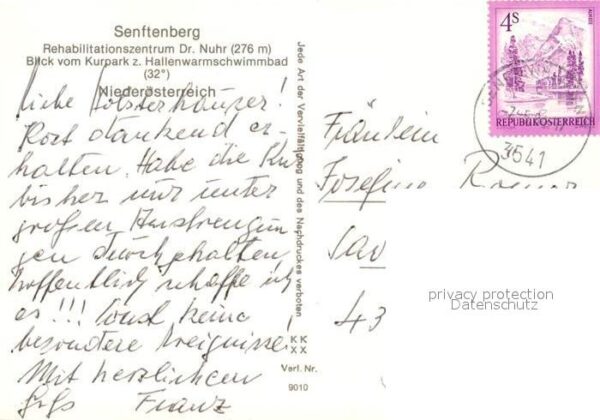 Senftenberg
Rehabilitationszentrum Dr. Nuhr (276 m)
Blick vom Kurpark z. Hallenwarmschwimmbad
(32°)
Niederösterreich
Liebe
Post dankend er-
halten. Habe die Kur
bisher nur unter
großen Anstrengun
gen durchgehalten,
hoffentlich schaffe ich
es!!! Sonst keine
besondere Ereignisse!
Mit herzlichen
Franz
Jede Art der Vervielfältigung und des Nachdruckes verboten
KK
XX
Verl. Nr.
9010
4S
REPUBLIK ÖSTERREICH
3541
Fräulein
Josefine
43
privacy protection
Datenschutz